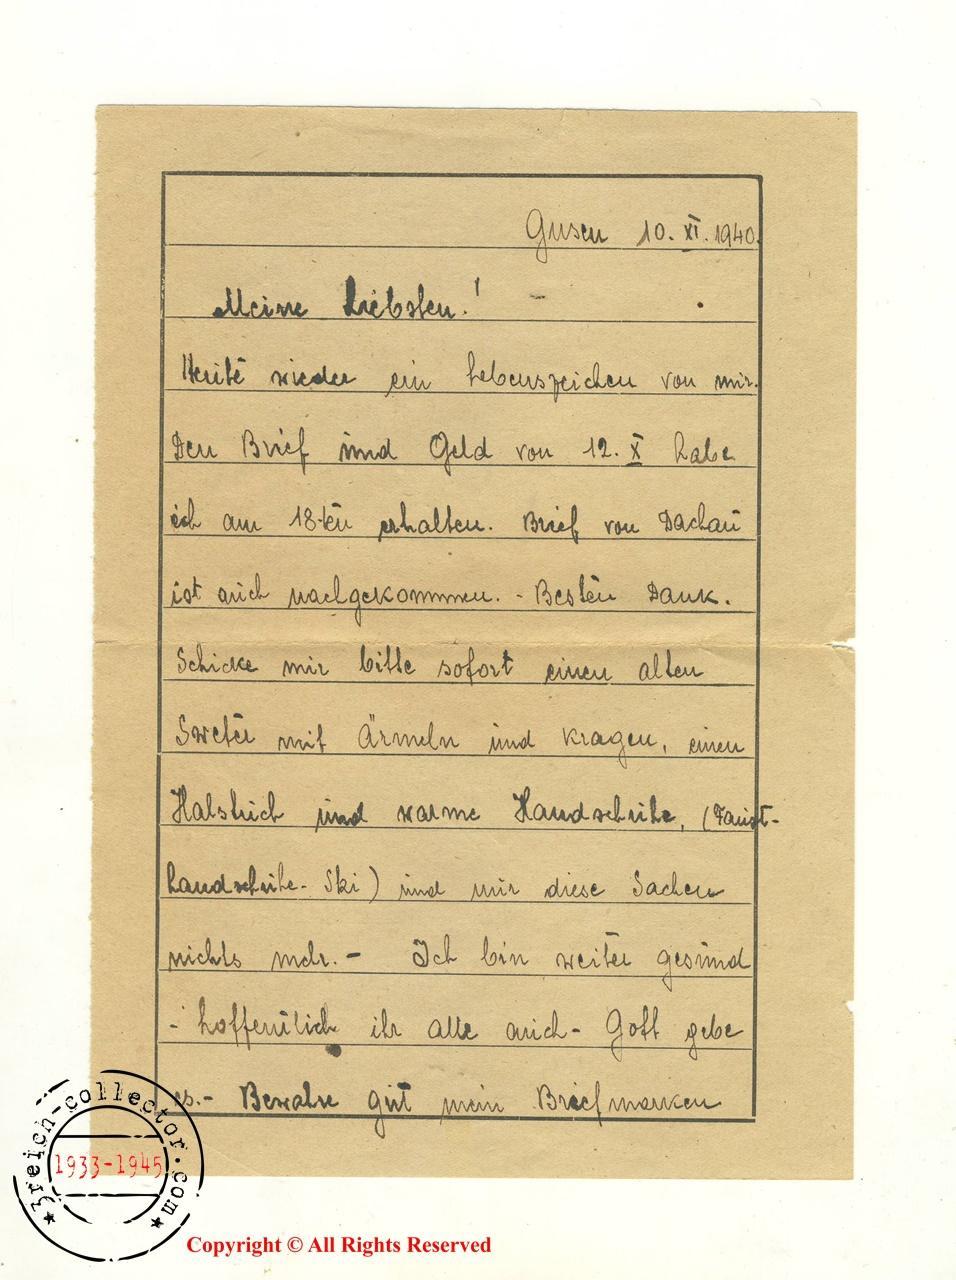 Gusen 10. XI. 1940.
Meine Liebsten!
Heute wieder ein Lebenszeichen von mir.
Den Brief und Geld von 12. X habe
ich am 18-ten erhalten. Brief von Dachau
ist auch nachgekommen. - Besten Dank.
Schicke mir bitte sofort einen alten
Sweter mit Ärmeln und Kragen, einen
Halstuch und warme Handschuhe, (Faust-
handschuhe - Ski) und nur diese Sachen
nichts mehr. - Ich bin weiter gesund
- hoffentlich ihr alle auch - Gott gebe
es. - Bewahre gut mein Briefmarken
3reich-collector.com
1933-1945
Copyright © All Rights Reserved